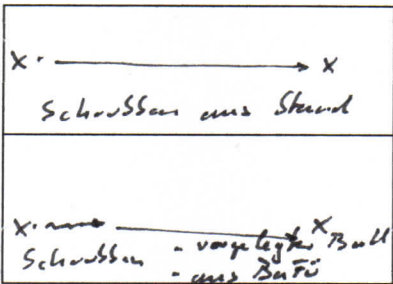 X · X
Schussen aus Stand
X · X
Schussen - vorgelegter Ball
- aus BaFü